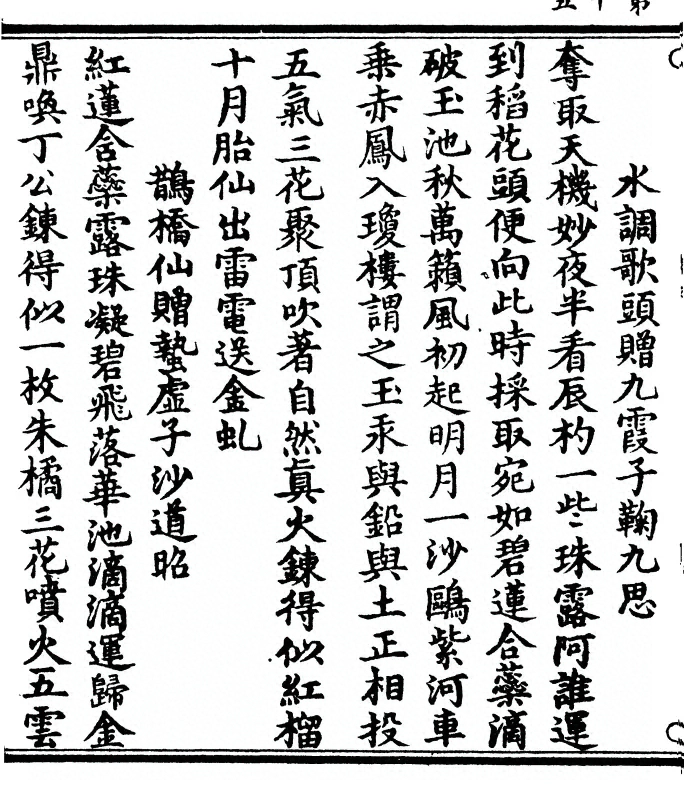 水調歌頭贈九霞子鞠九思
奪取天機妙夜半看辰杓一些珠露阿誰運
到稻花頭便向此時採取宛如碧蓮合蘂滴
破玉池秋萬籟風初起明月一沙鷗紫河車
乗赤鳳入瓊樓謂之玉汞與鉛與土正相投
五氣三花聚頂吹著自然眞火鍊得似紅榴
十月胎仙出雷電送金虬
鵲橋仙贈蟄虛子沙道昭
紅蓮含蘂露珠凝碧飛落華池滴滴運歸金
鼎喚丁公鍊得似一枚朱橘三花噴火五雲